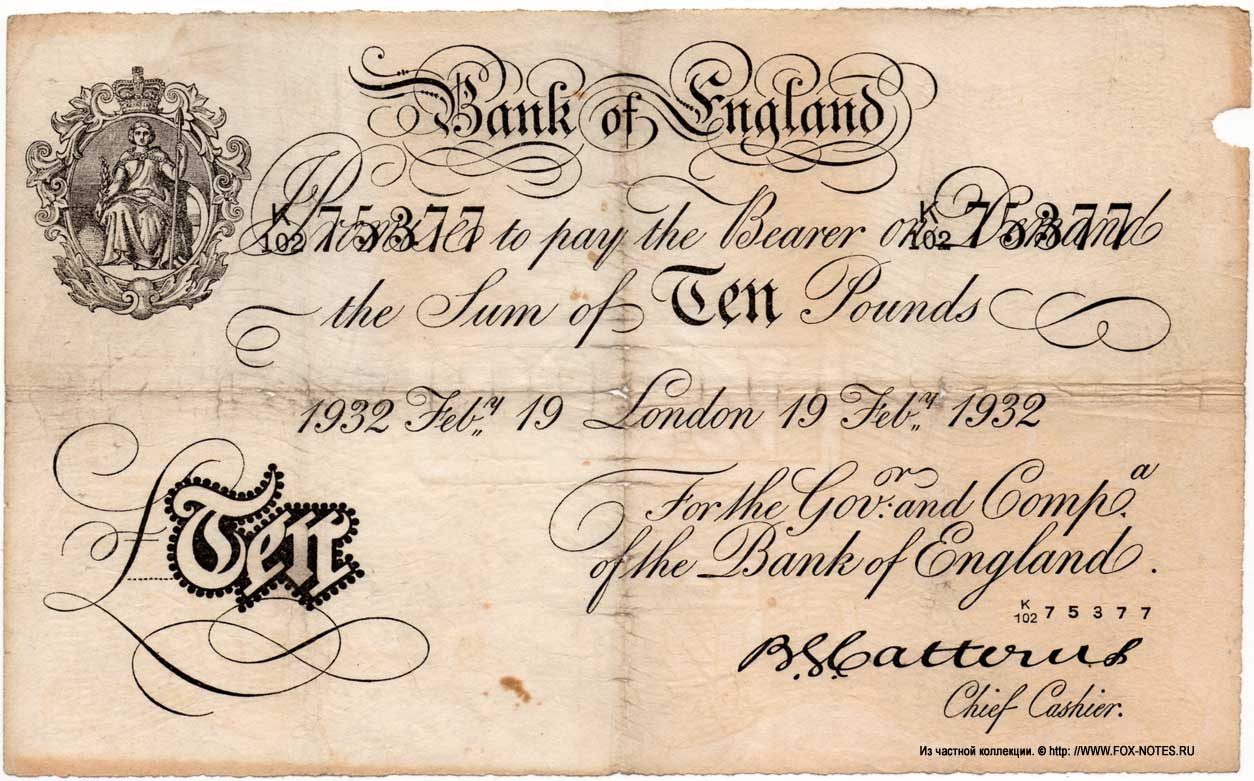 Bank of England
K/102 75377 K/102 75377
I Promise to pay the Bearer on Demand
the Sum of Ten Pounds
1932 Feb.y 19 London 19 Feb.y 1932
For the Gov.r and Comp.a
of the Bank of England.
£Ten
K/102 75377
B.G. Catterns
Chief Cashier.
Из частной коллекции. © http: //WWW.FOX-NOTES.RU